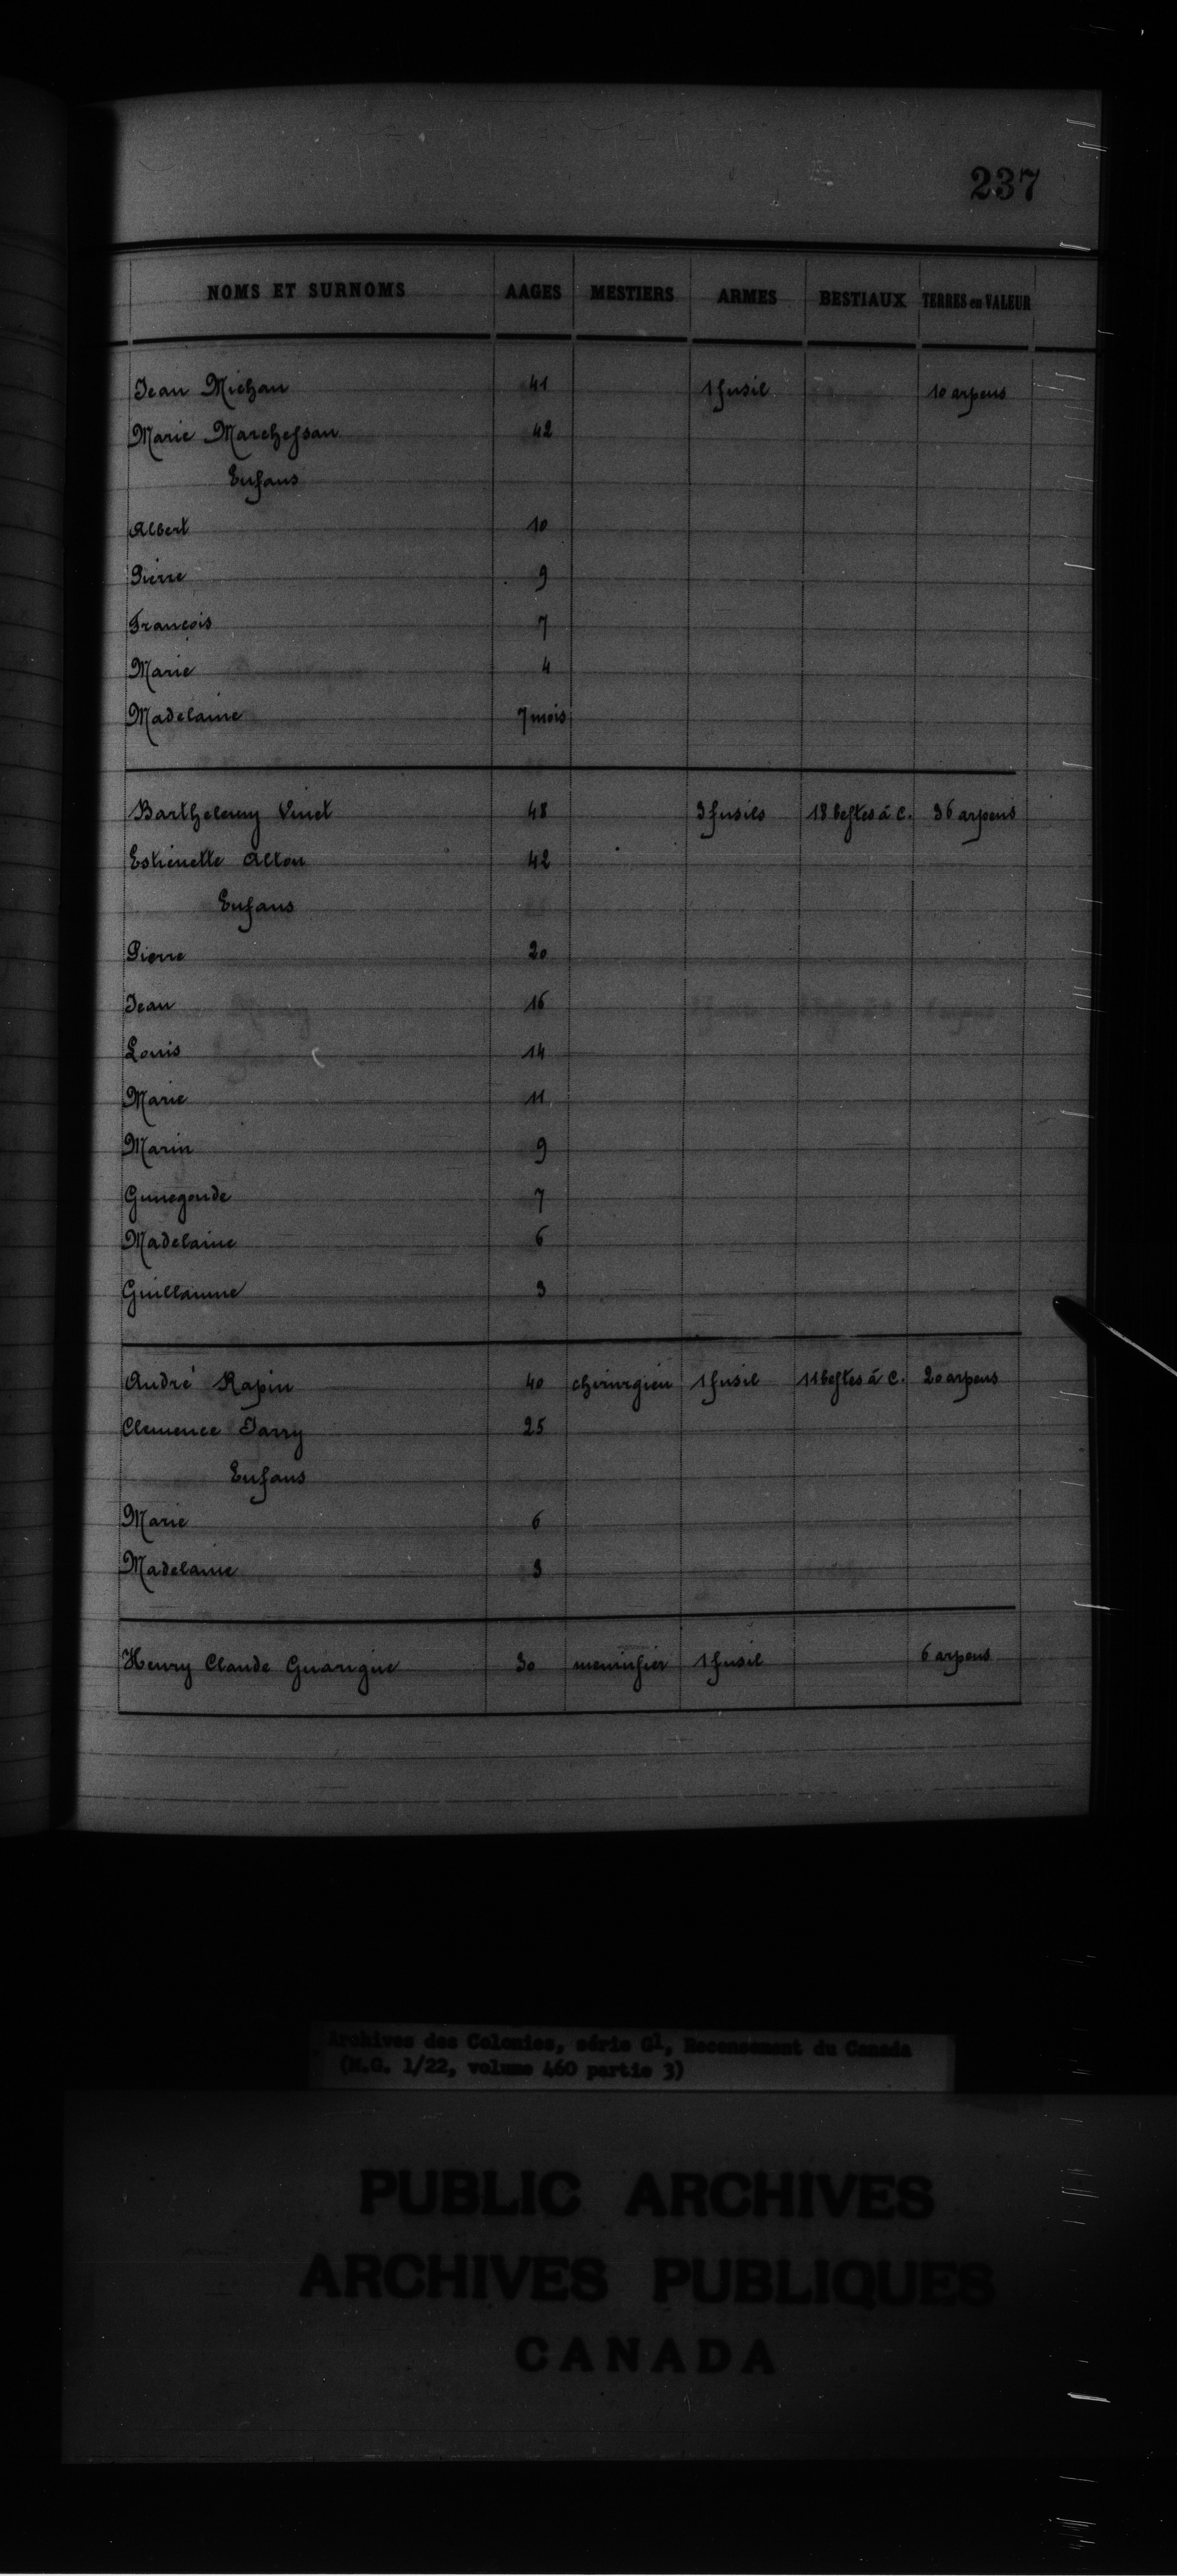 237
NOMS ET SURNOMS AAGES MESTIERS ARMES BESTIAUX TERRES en VALEUR
Jean Michau 41 1 fusil 10 arpens
Marie Marchessau 42
Enfans
Albert 10
Pierre 9
François 7
Marie 4
Madelaine 7 mois
Barthelemy Vinet 48 3 fusils 18 bestes à C. 36 arpens
Estienette Alton 42
Enfans
Pierre 20
Jean 16
Louis 14
Marie 11
Marin 9
Gunegonde 7
Madelaine 6
Guillaume 3
André Rapin 40 chirurgien 1 fusil 11 bestes à C. 20 arpens
Clemence Jarry 25
Enfans
Marie 6
Madelaine 3
Henry Claude Guarigue 30 menuisier 1 fusil 6 arpens
Archives des Colonies, série G1, Recensement du Canada
(M.G. 1/22, volume 460 partie 3)
PUBLIC ARCHIVES
ARCHIVES PUBLIQUES
CANADA